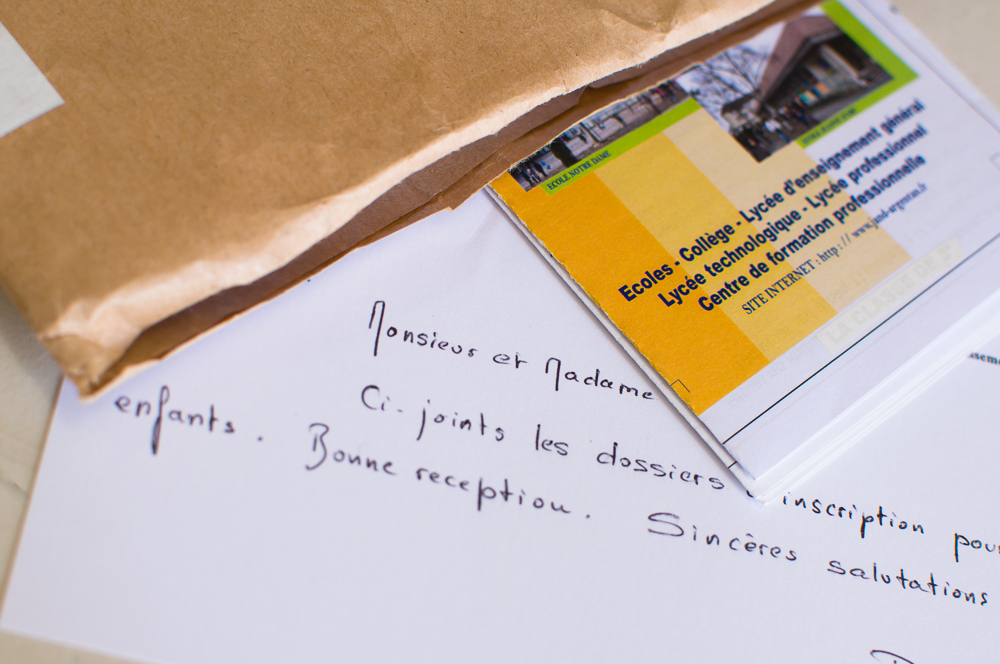 ECOLE NOTRE DAME
Ecoles - Collège - Lycée d'enseignement général
Lycée technologique - Lycée professionnel
Centre de formation professionnelle
SITE INTERNET : http://www.jnd-argentan.fr
LA CLASSE DE 3e
Monsieur et Madame
Ci-joints les dossiers inscription pour
enfants. Bonne reception. Sincères salutations